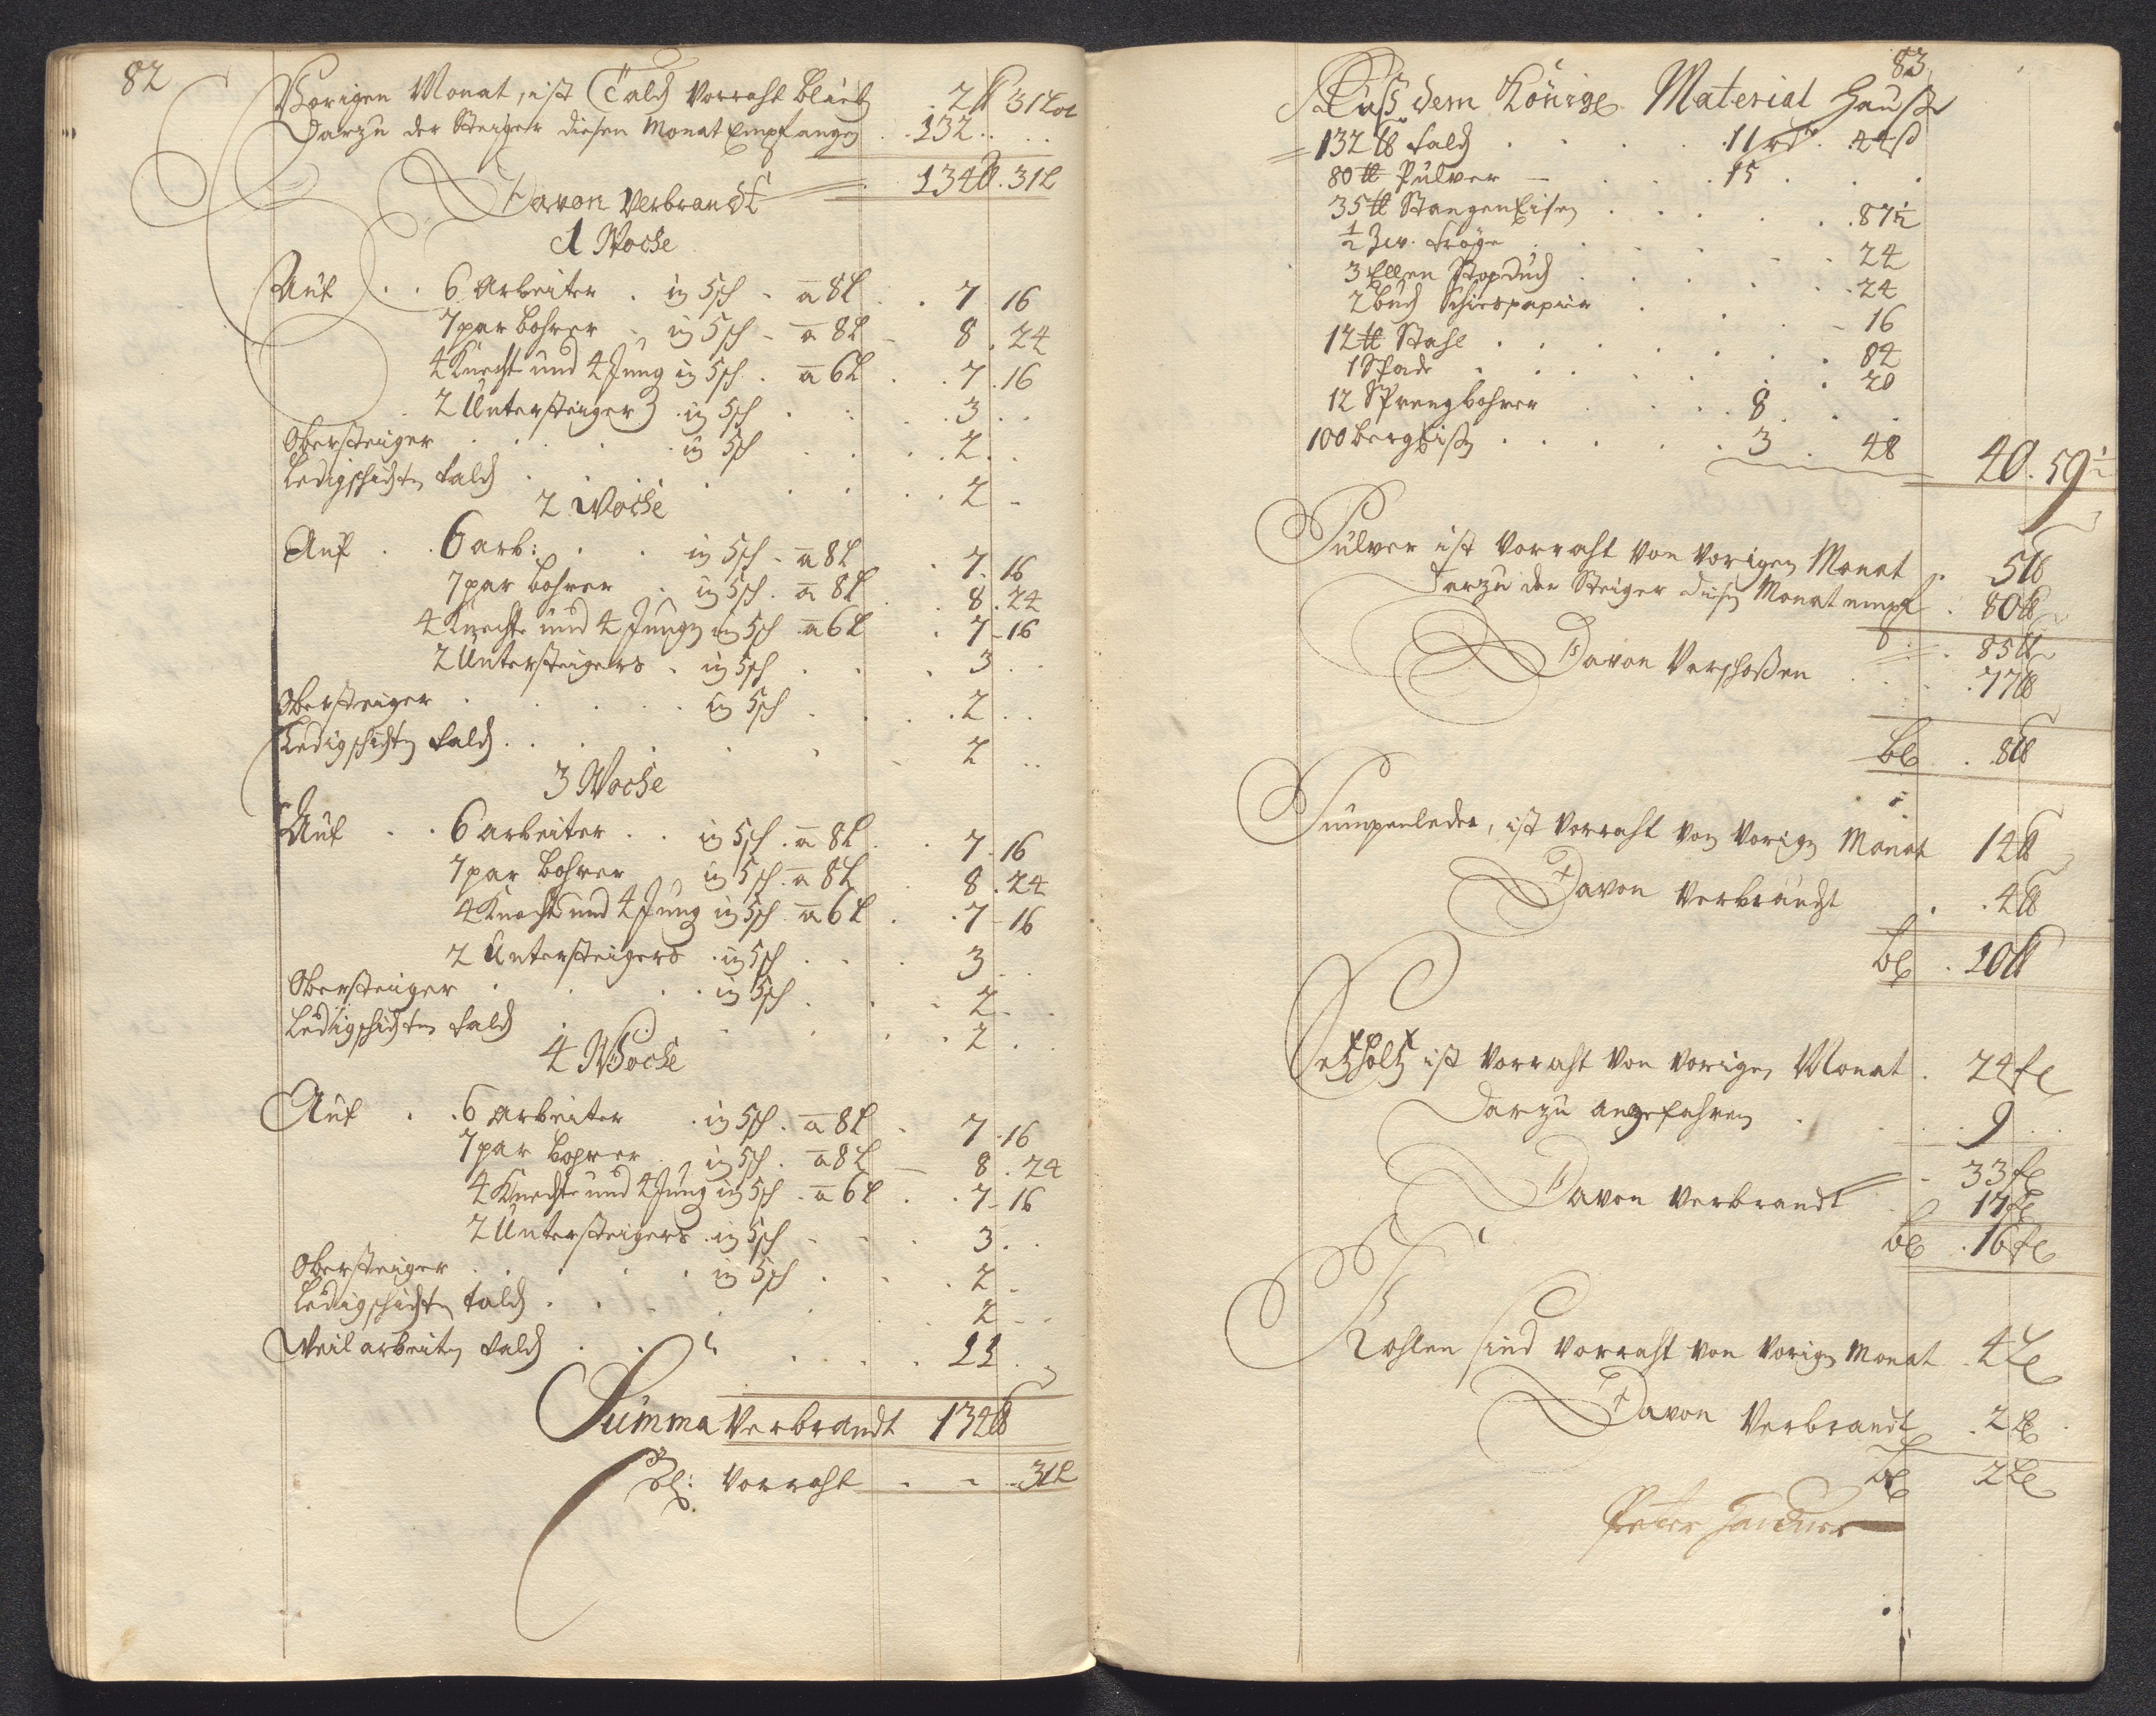 82
Vorigen Monat, ist Talch Vorraht blieb . 2 ℔ 31 Lot
Darzu der Steiger diesen Monat Empfangen . . 132 . . .
134 ℔ . 31 L
Davon Verbrandt
1 Woche
Auf . . 6 Arbeiter . in 5 sch - a 8 L . . 7 . 16
7 par bohrer - in 5 sch - a 8 L - 8 . 24
4 Knecht und 4 Jung in 5 sch . a 6 L . . 7 . 16
2 Untersteiger . in 5 sch . . . 3 . .
Obersteiger . . . . in 5 sch . . . 2 . .
Ledigschichten Talch . . . . . . 2 -
2 Woche
Auf . . 6 arb: . . in 5 sch - a 8 L . 7 . 16
7 par bohrer . in 5 sch . a 8 L . . 8 . 24
4 Knecht und 4 Jungen in 5 sch a 6 L . 7 - 16
2 Untersteigers . in 5 sch . . . 3 . .
Obersteiger . . . . . in 5 sch . . . 2 . .
Ledigschichten Talch . . . . . - 2 . .
3 Woche
Auf . . 6 Arbeiter . . in 5 sch . a 8 L . . 7 . 16
7 par bohrer in 5 sch . a 8 L 8 . 24
4 Knecht und 4 Jung in 5 sch . a 6 L . . 7 - 16
2 Untersteigers . in 5 sch . . . 3 . .
Obersteiger . . . . in 5 sch . . - 2 - .
Ledigschichten Talch . - . . . 2 . .
4 Woche
Auf . . 6 Arbeiter . in 5 sch . a 8 L . 7 . 16
7 par bohrer . in 5 sch . a 8 L - 8 . 24
4 Knecht und 4 Jung in 5 sch . a 6 L . . 7 - 16
2 Untersteigers . in 5 sch - - . 3 . .
Obersteiger . . . . in 5 sch . . . 2 -
Ledigschichten Talch . . - . . . 2 - -
Weilarbeiten Talch . . . . . . 11 . .
Summa Verbrandt 134 ℔
bl: Vorraht - - . 31 L
83
Auß dem Königl. Material Hauße
132 ℔ Talch . . . . 11 rd . 44 ß
80 ℔ Pulver - . . . 15 . . .
35 ℔ StangenEisen . . . . . 87½
½ Zw. Tröge . . . . . 24
3 Ellen Stopduch . . . . . 24
2 buch Schiespapier . . . - 16
12 ℔ Stahl . . . . . . . 84
1 Spade . . . . . . . 20
12 Sprengbohrer . . . . 8 . . .
100 bergEisen . . . . . 3 . 48
40 . 59½
Pulver ist Vorraht von Vorigen Monat . 5 ℔
Darzu der Steiger diesen Monat empf . 80 ℔
85 ℔
Davon Verschoßen . . . 77 ℔
bl . 8 ℔
Pumpenleder, ist Vorraht von Vorign Monat 14 ℔
Davon Verbraucht . . 4 ℔
bl . 10 ℔
Setzholtz ist Vorraht von Vorigen Monat . 24 fl
Darzu angefahren . . . 9 . .
33 fl
Davon Verbrandt . 17 fl
bl . 16 fl
Kohlen sind Vorraht von Vorign Monat . 4 L
Davon Verbrandt . 2 L
bl 2 L